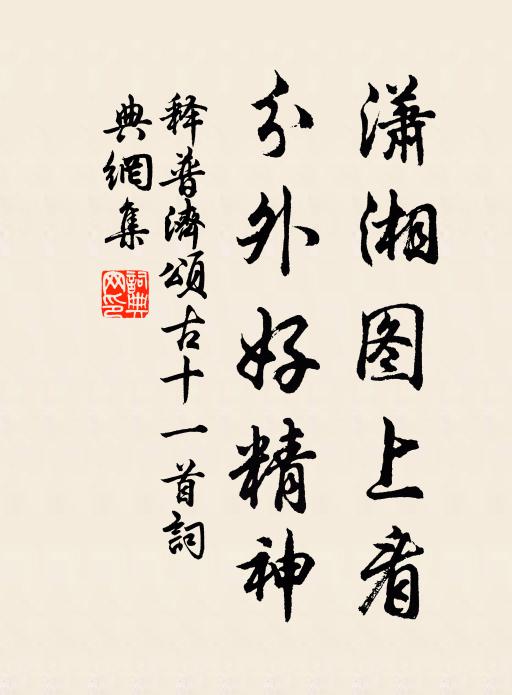 潇湘图上看
分外好精神
释普濟頌古十一首詞
典網集
詞典网印